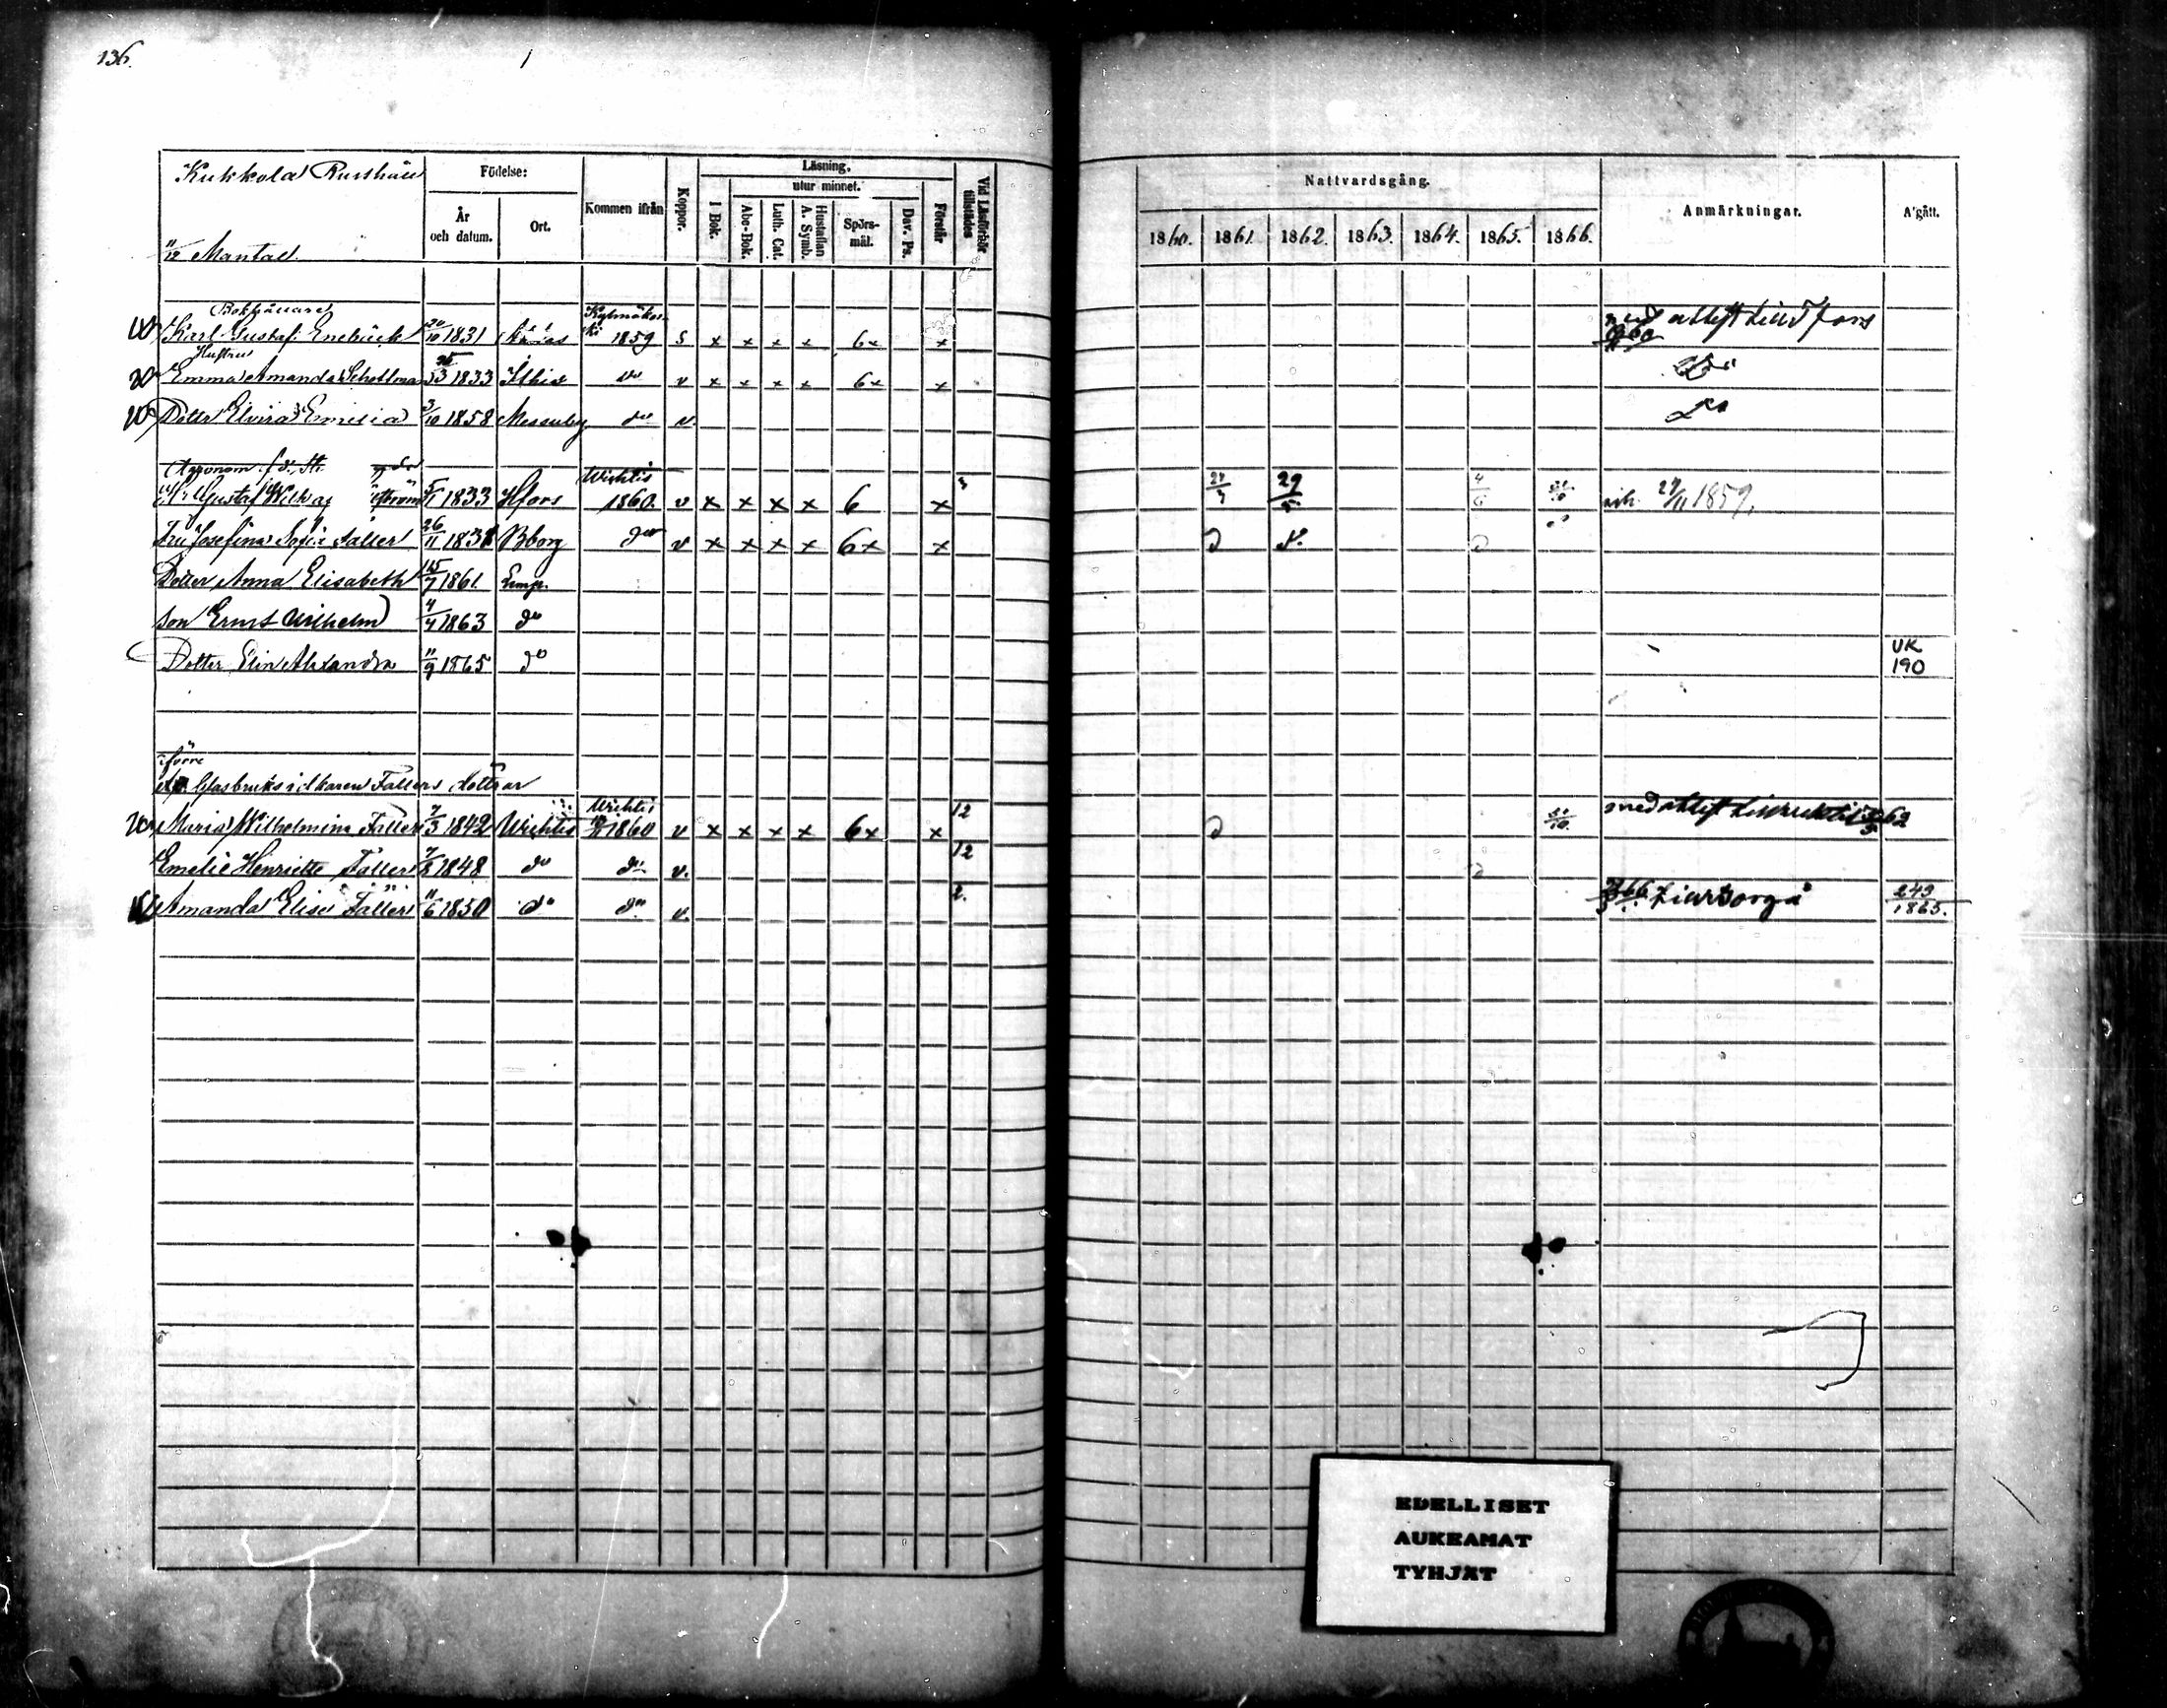 136.
Kukkola Rusthåll
11/12 Mantal.
Födelse:
År och datum.
Ort.
Kommen ifrån
Koppor.
Läsning.
I Bok.
utur minnet.
Abc-Bok.
Luth. Cat.
Hustaflan A. Symb.
Spörs-mål.
Dav. Ps.
Förstår
Vid Läsförhör tillstädes
Nattvardsgång.
1860. 1861. 1862. 1863. 1864. 1865. 1866.
Anmärkningar.
Afgått.
Bokhållare
Karl Gustaf Enebäck 20/10 1831 1859 s x x x x 6x x med attest till H:fors 1860
Hustru
Emma Amanda 1833 Ithis do v x x x x 6x x do
Dotter Elvira Emelia 3/10 1858 Messuby do v do
Agronom
Gustaf 5/1 1833 Hfors Wichtis 1860. v x x x x 6 x 3 29/5 27/11 1859.
Fru Josefina Sofia Faller 26/11 1831 Bborg do v x x x x 6x x
Dotter Anna Elisabeth 15/7 1861. Lemp.
Son Ernst Wilhelm 4/4 1863 do
Dotter Elin Alexandra 11/9 1865 do UK 190
förre
Glasbruksidkaren Fallers döttrar
Maria Wilhelmina Faller 7/3 1842 Wichtis Wichtis 1860 v x x x x 6x x 12 med attest 62
Emelie Henriette Faller 7/2 1848 do do v. 12
Amanda Elise Faller 11/6 1850 do do v. 2. 66 till Borgå 243/1865.
EDELLISET
AUKEAMAT
TYHJÄT